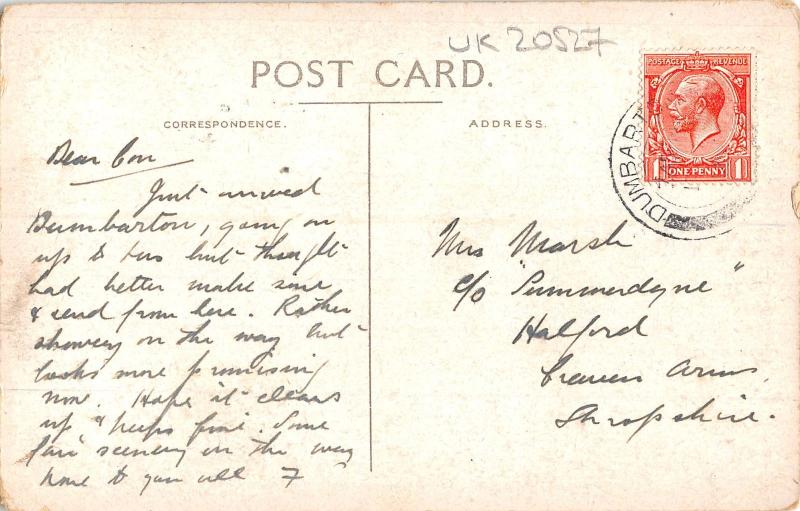 UK 20527
POST CARD.
CORRESPONDENCE.
ADDRESS.
POSTAGE REVENUE
1 ONE PENNY 1
DUMBART
Dear Con
Just arrived
Dumbarton, going on
up to but thought
had better make sure
& send from here. Rather
showery on the way but
looks more promising
now. Hope it clears
up & keeps fine. Some
fair scenery on the way
to you all F
Mrs Marsh
c/o "Summerdyne"
Halford
Craven Arms,
Shropshire.